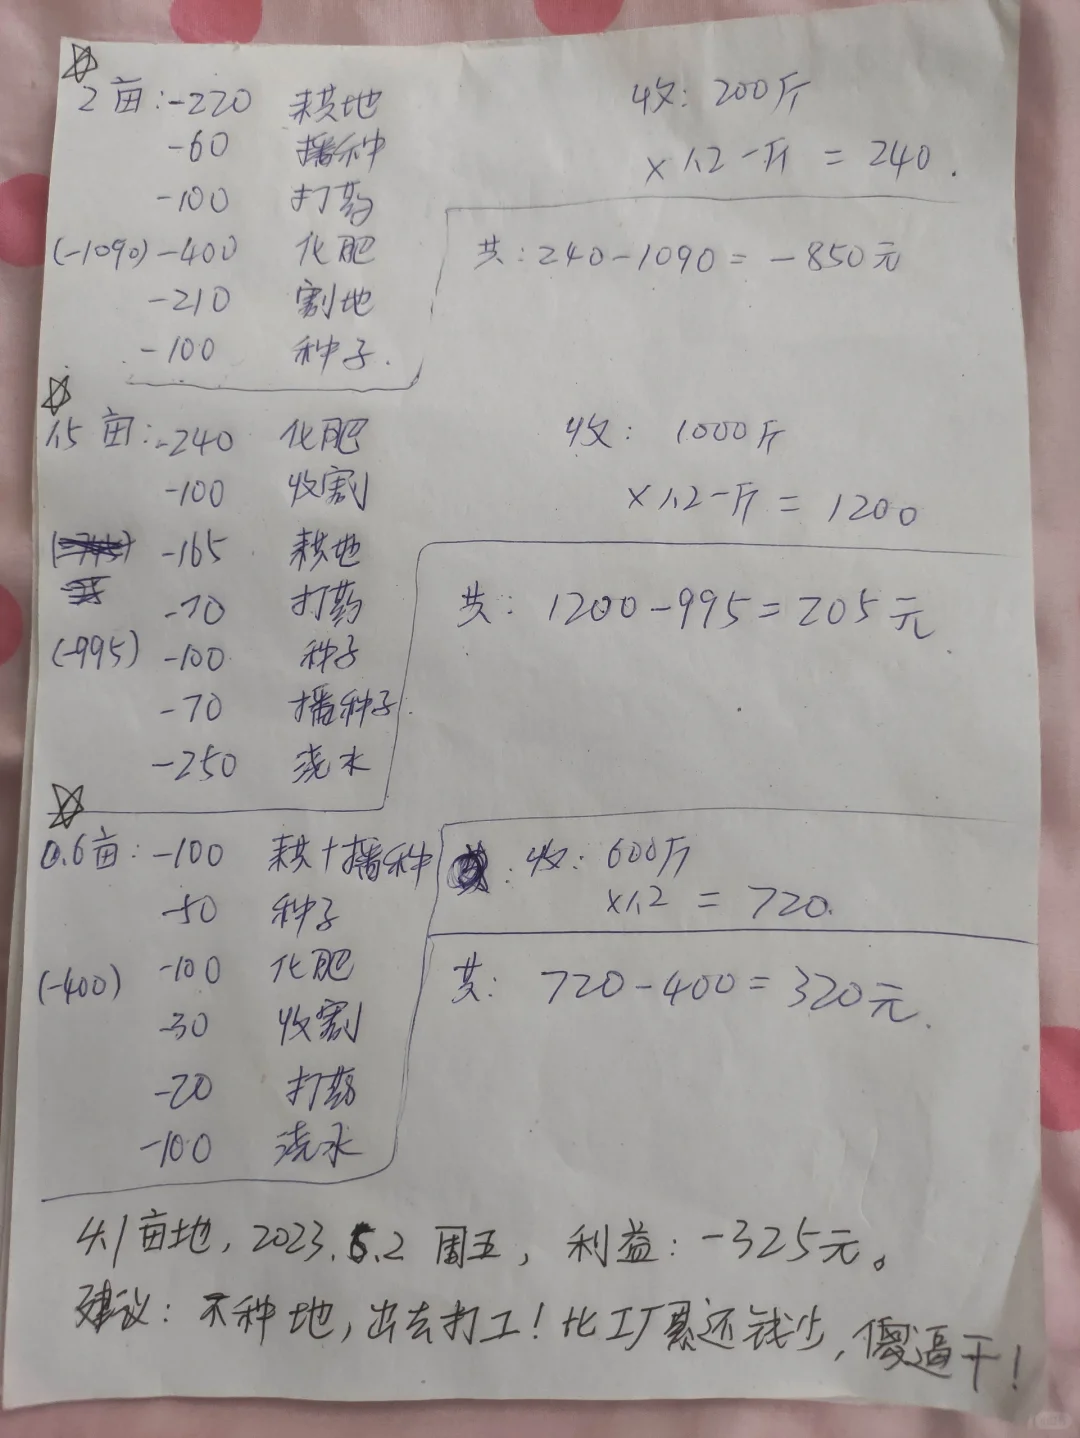 2亩:-220 耕地
-60 播种
-100 打药
(-1090) -400 化肥
-210 割地
-100 种子.
收: 200斤
×1.2一斤 = 240.
共: 240-1090 = -850元
1.5亩: -240 化肥
-100 收割
-165 耕地
-70 打药
(-995) -100 种子
-70 播种子.
-250 浇水
收: 1000斤
×1.2一斤 = 1200
共: 1200-995=205元.
0.6亩: -100 耕+播种
-50 种子
(-400) -100 化肥
-30 收割
-20 打药
-100 浇水
: 收: 600斤
×1.2 = 720.
共: 720-400=320元.
4.1亩地, 2023.6.2 周五, 利益: -325元。
建议: 不种地, 出去打工! 比工厂累还钱少, 傻逼干!